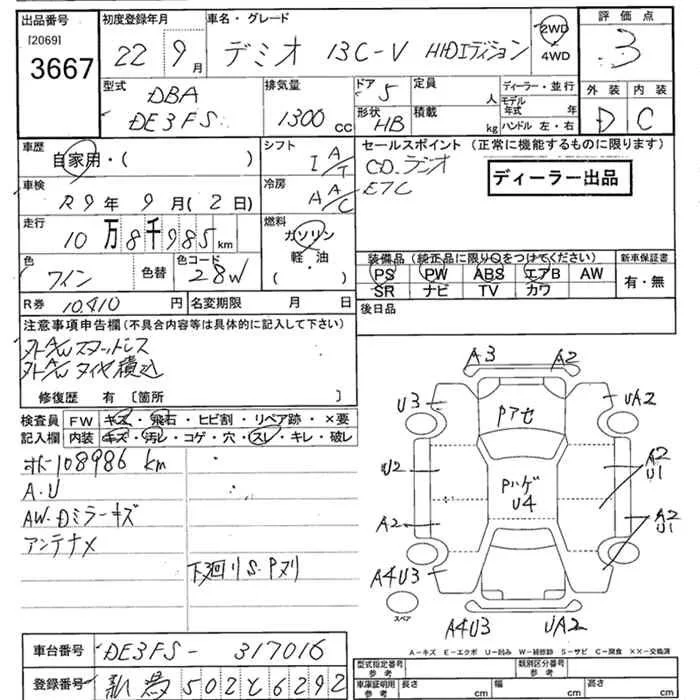 出品番号
[2069]
3667
初度登録年月
22年9月
車名・グレード
デミオ 13C-V HIDエディション
2WD
4WD
評価点
3
外装 内装
D C
型式
DBA
DE3FS
排気量
1300cc
ドア
5
形状
HB
定員
人
積載
kg
ディーラー・並行
モデル年式 年
ハンドル 左・右
車歴
自家用・( )
シフト
I A/T
車検
R9年9月(2日)
冷房
A A/C
走行
10万8千985km
燃料
ガソリン
軽油
・
( )
色
ワイン
色替
色コード
28W
R券
10,410円
名変期限 月 日
セールスポイント(正常に機能するものに限ります)
CD.ラジオ
ETC
ディーラー出品
装備品(純正品に限り○をつけてください)
PS PW ABS エアB AW
SR ナビ TV カワ
新車保証書
有・無
後日品
注意事項申告欄(不具合内容等は具体的に記入して下さい)
外A/Wスタットレス
外A/Wタイヤ積込
修復歴 有 〔箇所 〕
検査員記入欄
FW キズ・飛石・ヒビ割・リペア跡・×要
内装 キズ・汚レ・コゲ・穴・スレ・キレ・破レ
108986 km
A・U
AW・Dミラーキズ
アンテナメ
下廻りS・Pヌリ
A3 A2
U3 UA2
Pアセ
U2 A2 U1
Pハゲ
U4
A2 A2 U1
A4U3
スペア
A4U3 UA2
A-キズ E-エクボ U-凹み W-補修跡 S-サビ C-腐食 XX-交換済
車台番号 DE3FS-317016
登録番号 502と6292
型式指定番号
参考
類別区分番号
参考
車庫証明用
参考
長さ cm
幅 cm
高さ cm